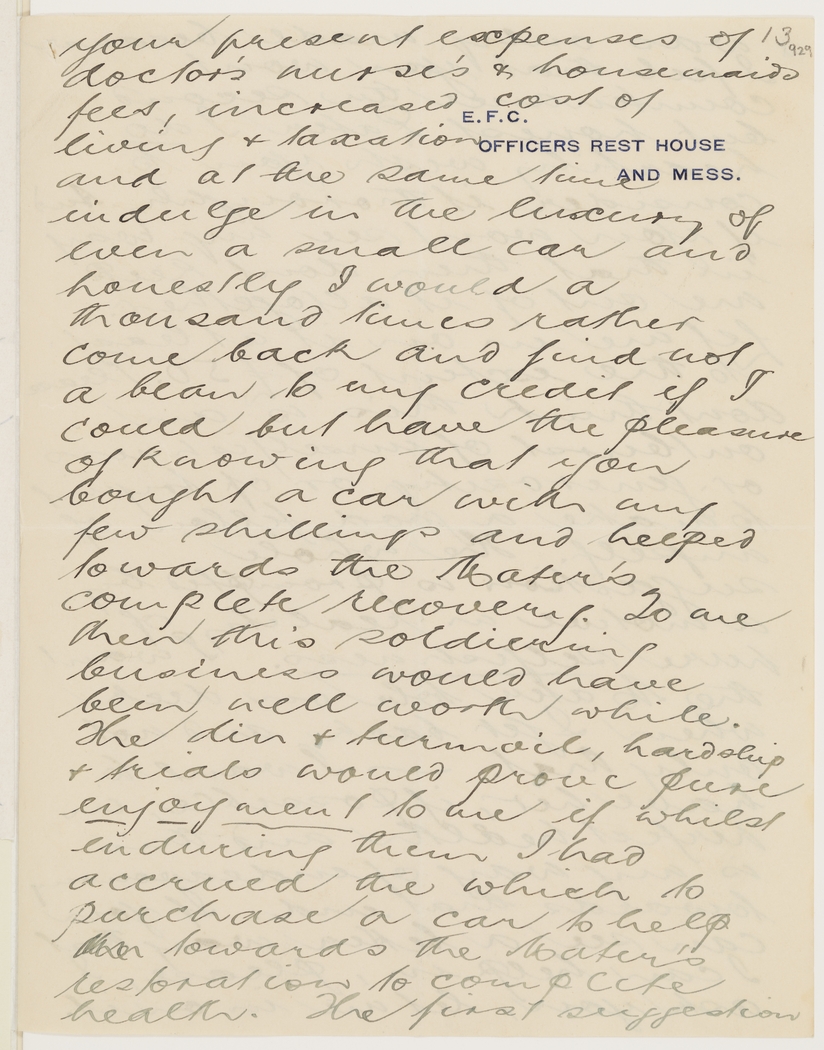 your present expenses of 13
929
doctor's nurse's & housemaids
fees, increased cost of
E.F.C.
living & taxation
OFFICERS REST HOUSE
AND MESS.
and at the same time
indulge in the luxury of
even a small car and
honestly I would a
thousand times rather
come back and find not
a bean to my credit if I
could but have the pleasure
of knowing that you
bought a car with my
few shillings and helped
towards the Mater's
complete recovery. To me
then this soldiering
business would have
been well worth while.
The din & turmoil, hardship
& trials would prove pure
enjoyment to me if whilst
enduring them I had
accrued the which to
purchase a car to help
towards the Mater's
restoration to complete
health. The first suggestion